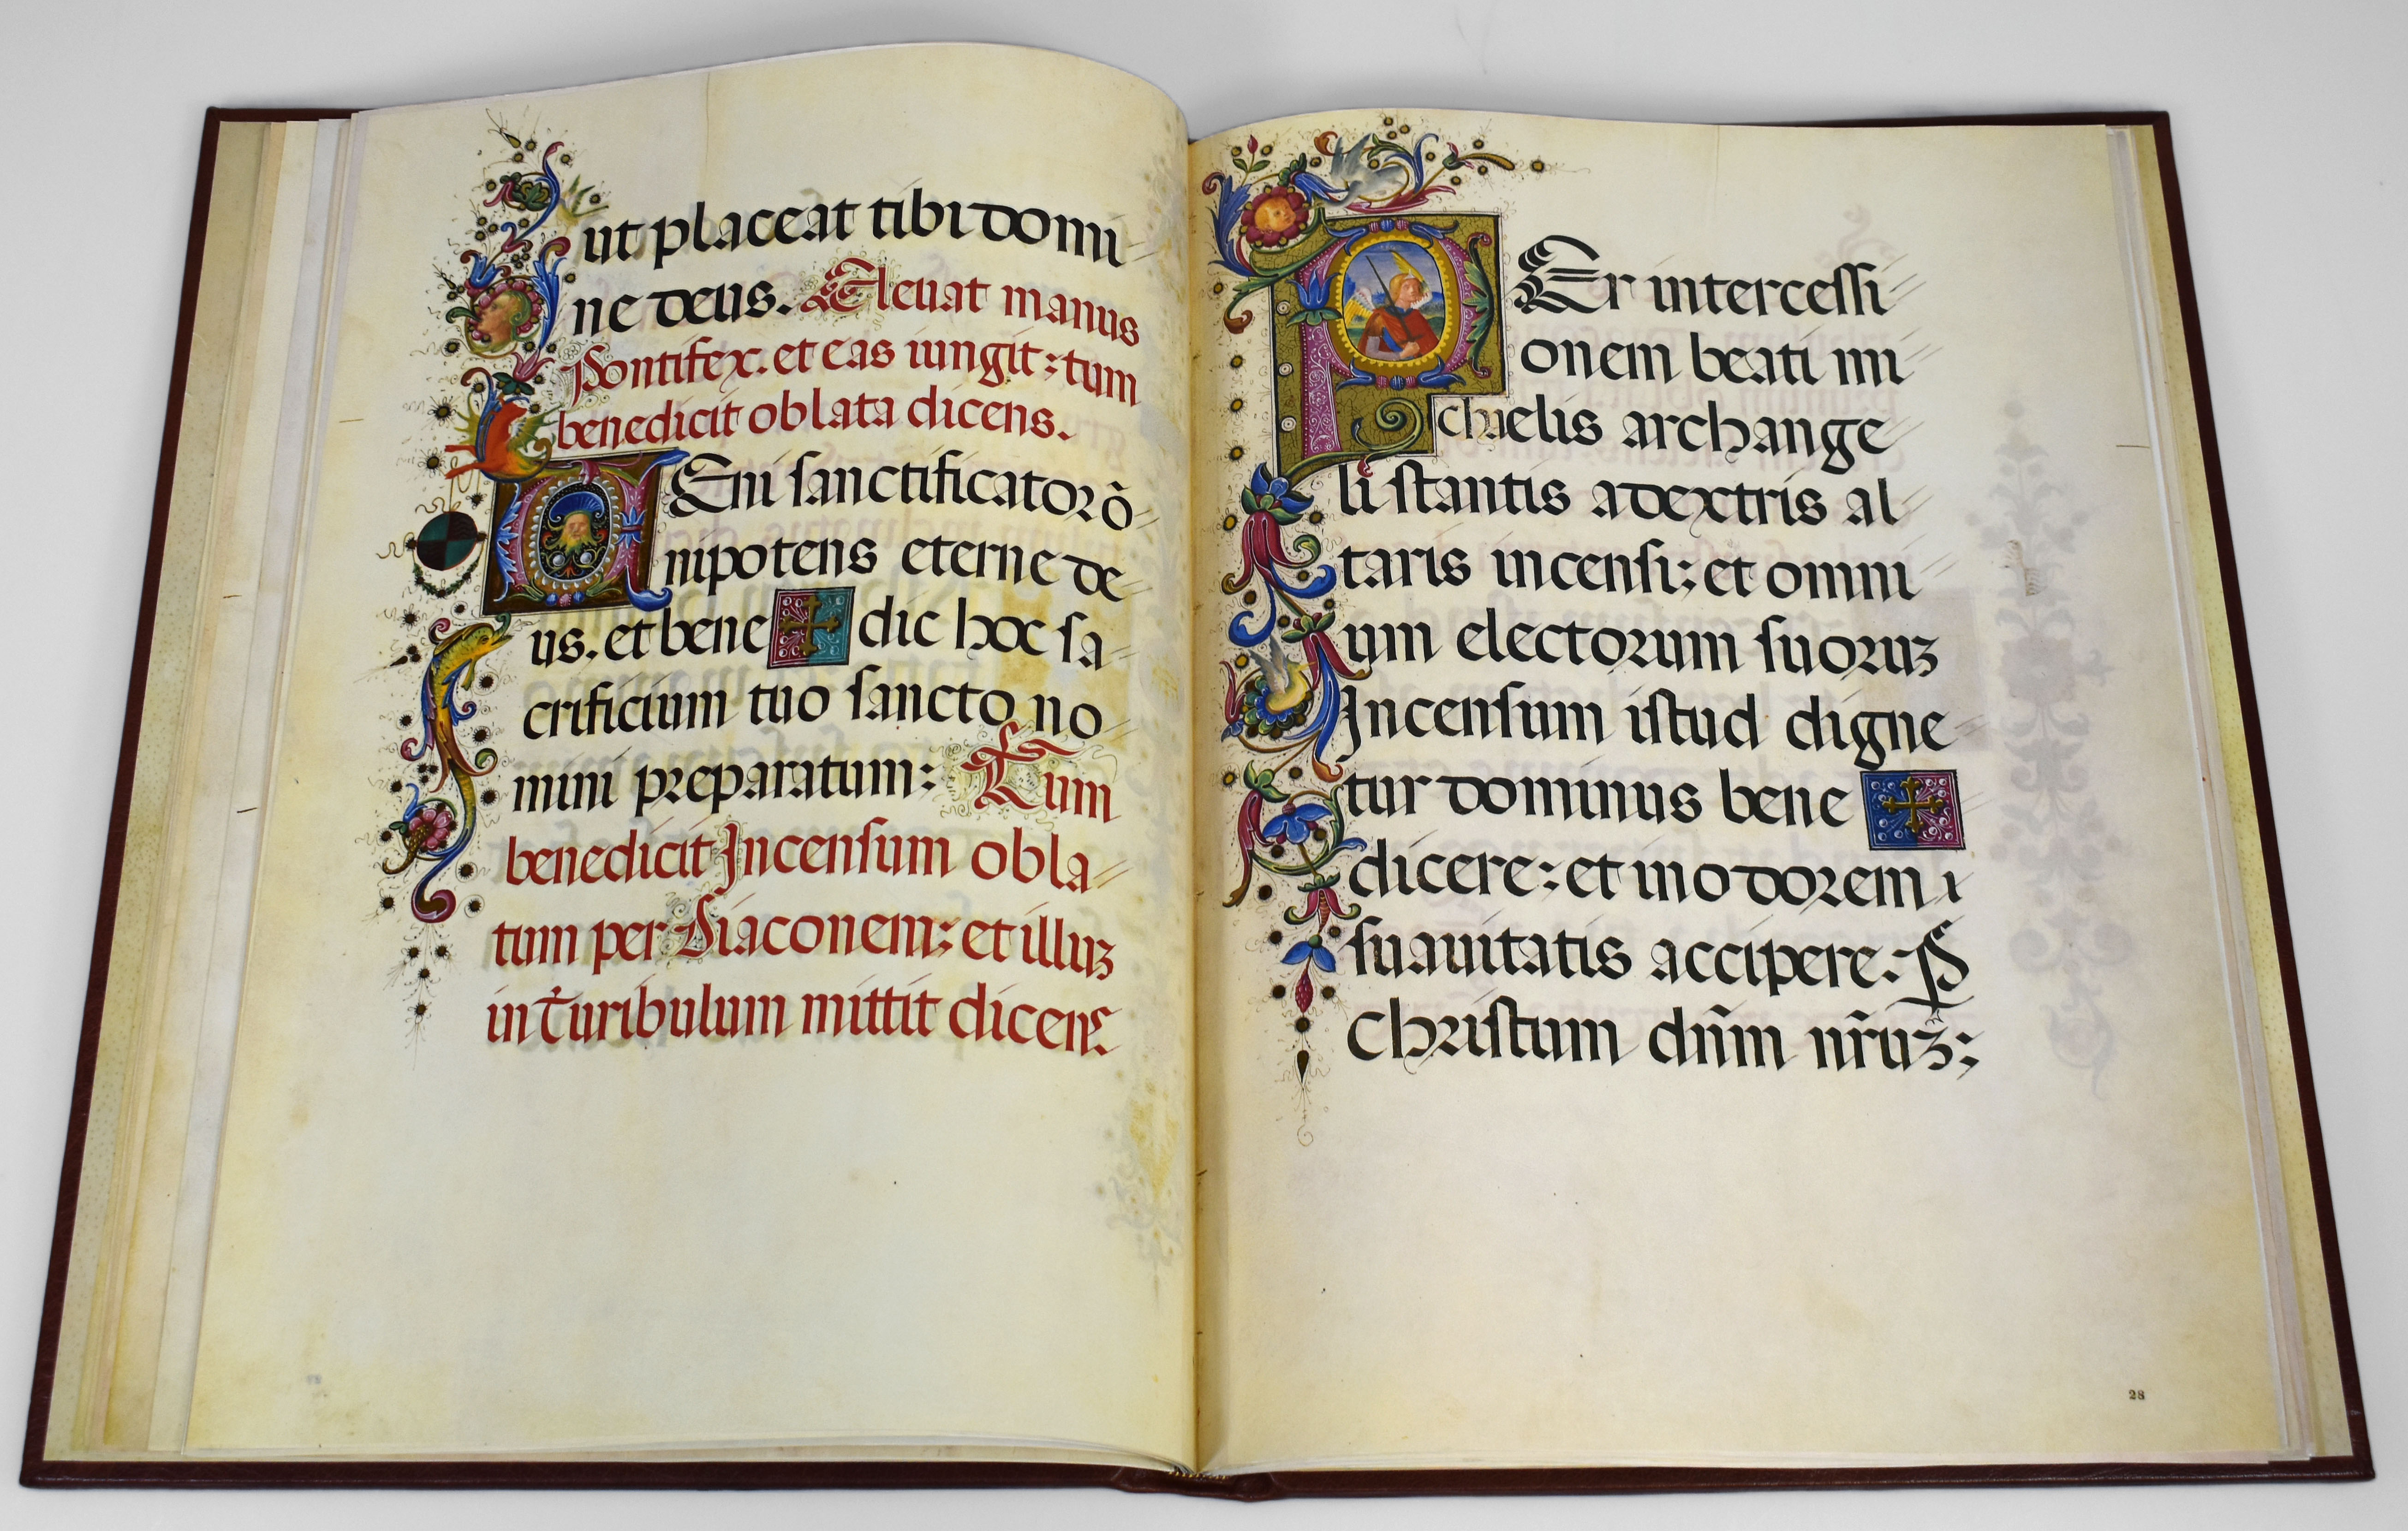 ut placeat tibi domi
ne deus. Eleuat manus
Pontifex. et eas iungit: tum
benedicit oblata dicens.
VEni sanctificator õ
nipotens eterne de
us. et bene ✠ dic hoc sa
crificium tuo sancto no
mini preparatum: Tum
benedicit Incensum obla
tum per Diaconem: et illuꝫ
in Turibulum mittit dicens.
PEr intercessi
onem beati mi
chaelis archange
li stantis a dextris al
taris incensi: et omni
um electorum suoruꝫ
Incensum istud digne
tur dominus bene ✠
dicere: et in odorem
suauitatis accipere: P̱
Christum dn̄m nr̄uꝫ:
28